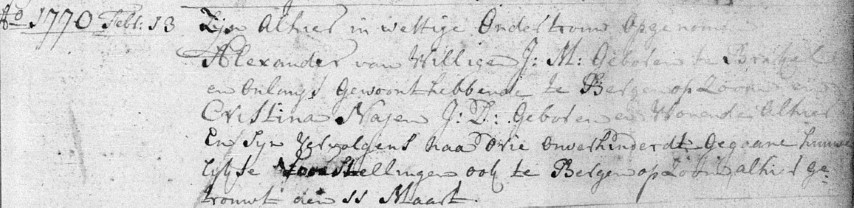 Ao 1770 Febr: 13 Zijn Alhier in wettige Ondertrouw Opgenome
Alexander van Willigen J: M: Geboren te Brakel
en onlangs gewoont hebbende te Bergen op Zoom en
Cristina Najen J: D: Geboren en Wonende Alhier
En Zijn vervolgens naa drie onverhinderdt Gegaane huwe
lijkse Voorstellingen ook te Bergen op Zoom alhier ge-
trouwt den 11 Maart.